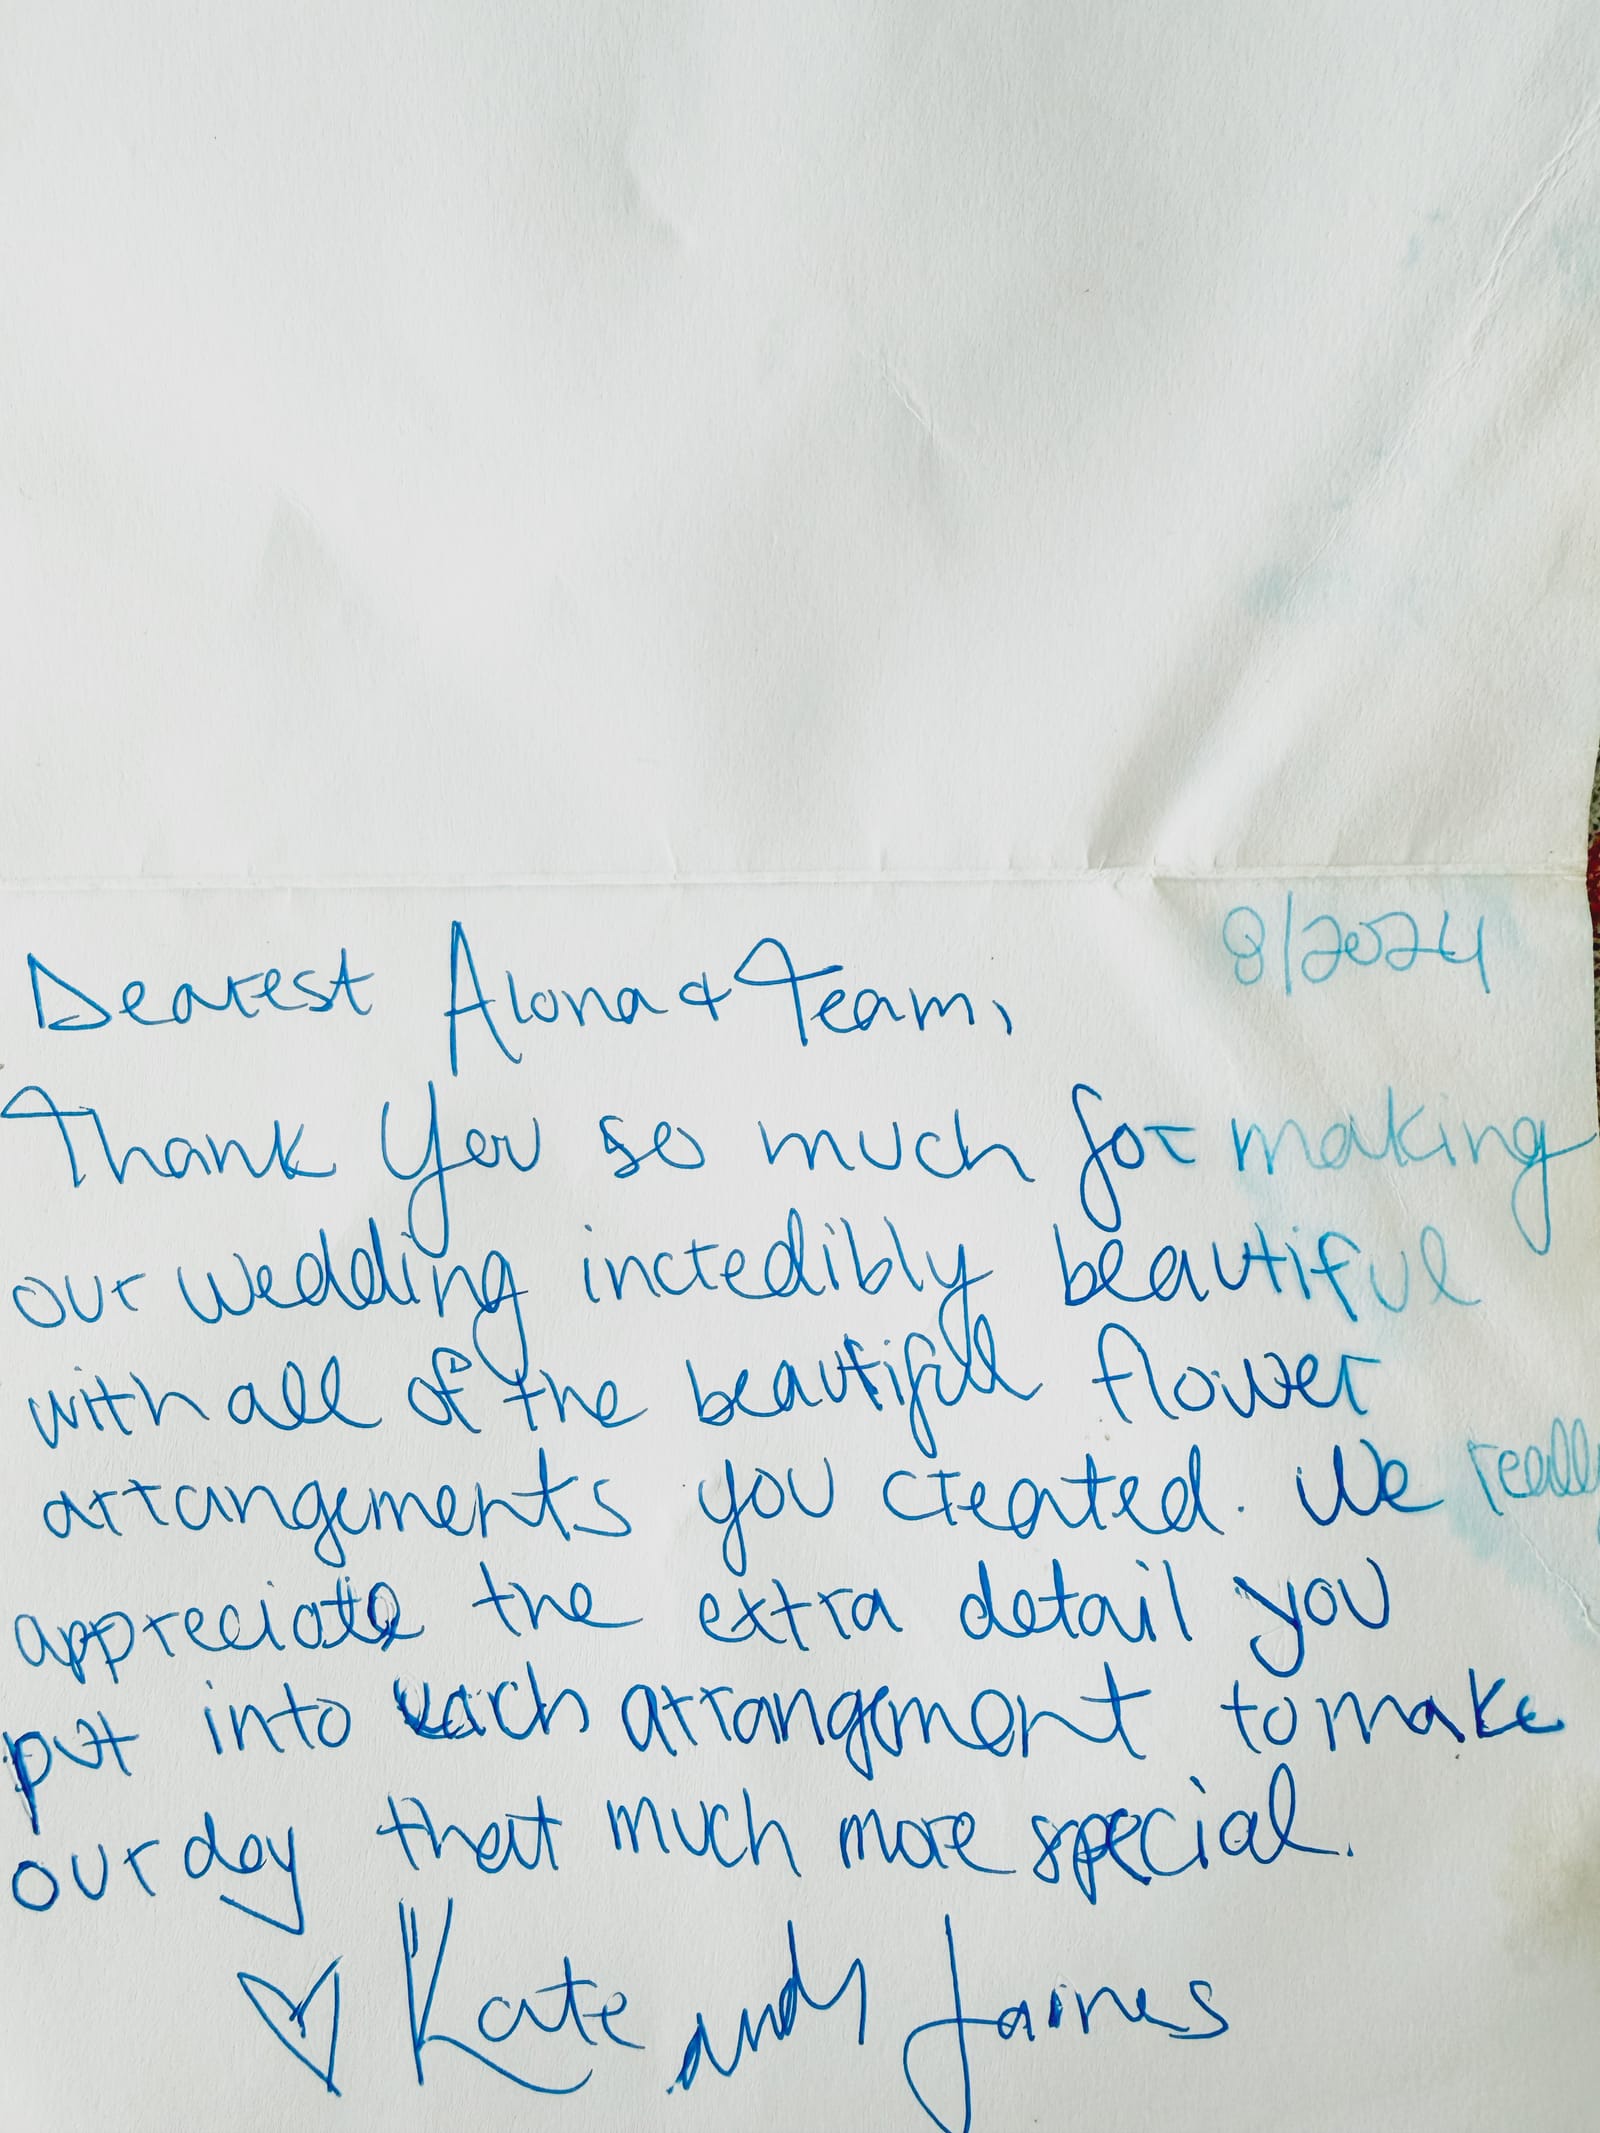 8/2024
Dearest Alona & Team,
Thank You so much for making
our wedding incredibly beautiful
with all of the beautiful flower
arrangements you created. We really
appreciate the extra detail you
put into each arrangement to make
our day that much more special.
♡ Kate and James